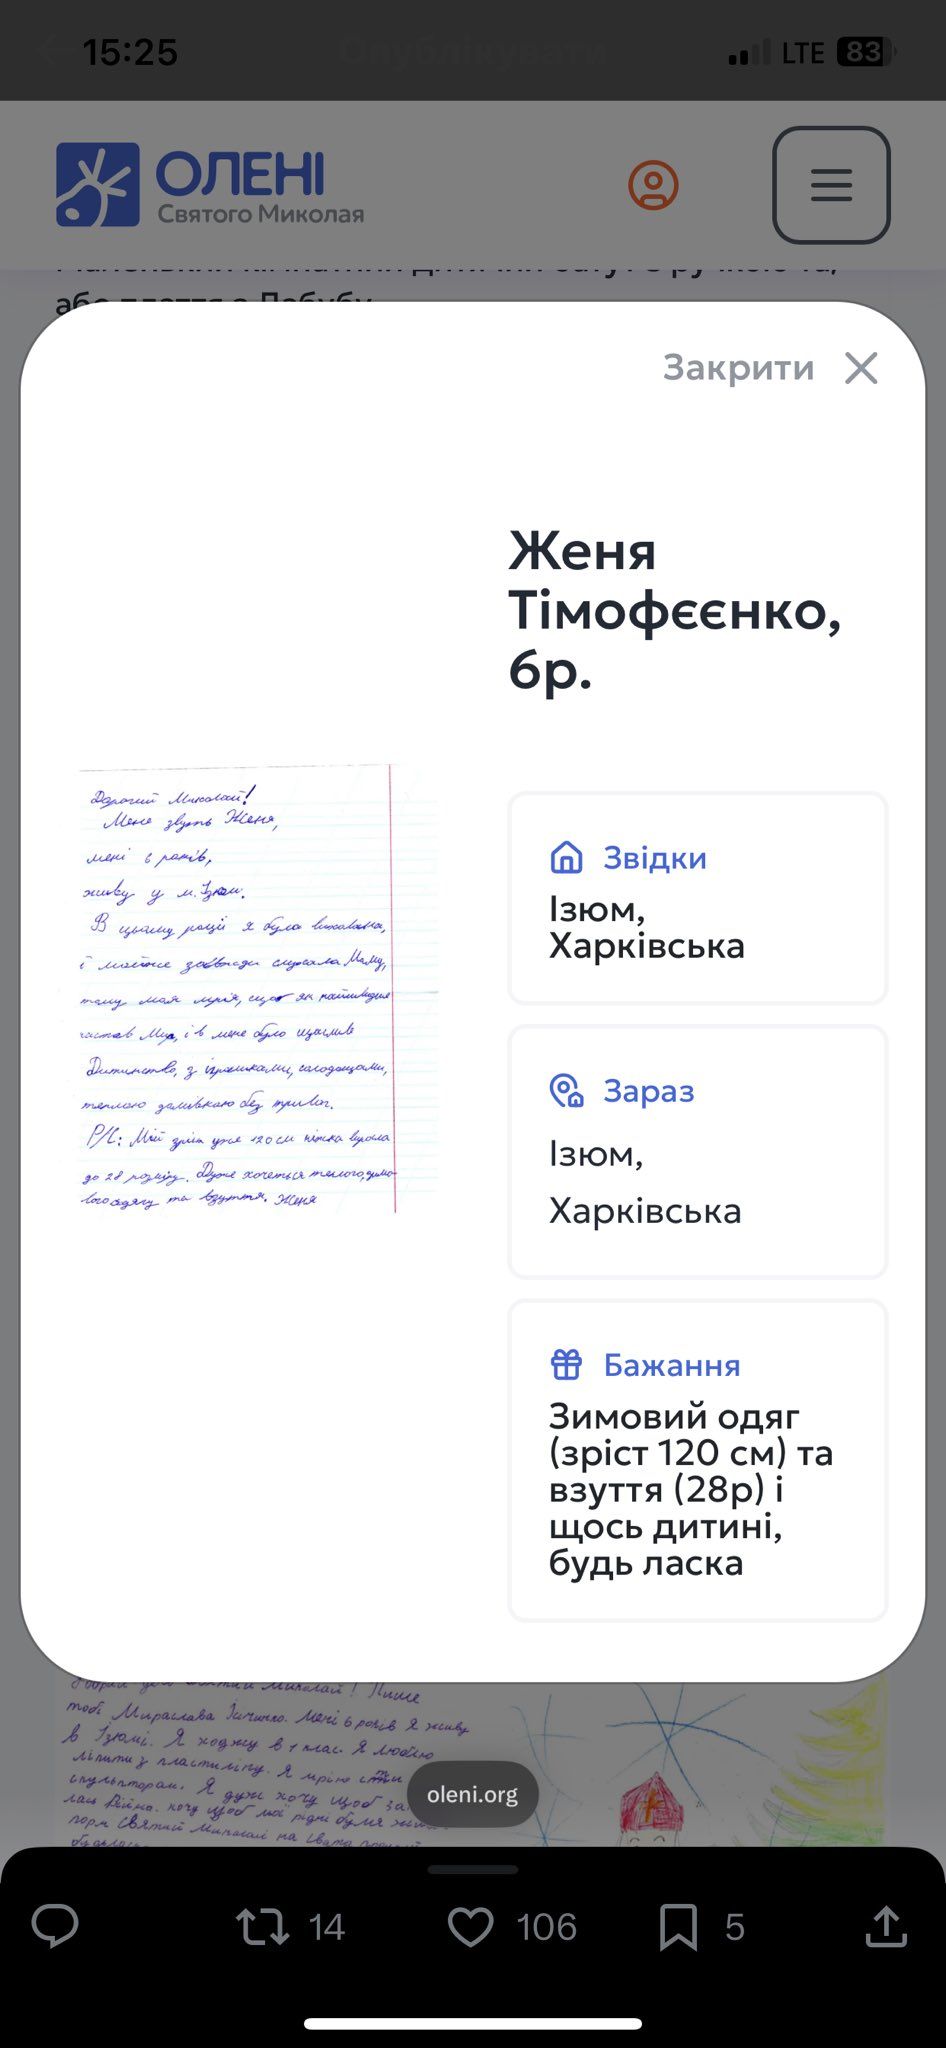 15:25
Опублікувати
LTE 83
ОЛЕНІ
Святого Миколая
Закрити
Женя
Тімофєєнко,
6р.
Дорогий Миколай!
Мене звуть Женя,
мені 6 років,
живу у м. Ізюм.
В цьому році я була вихована,
і майже завжди слухала Маму,
тому моя мрія, щоб як найшвидше
настав Мир, і в мене було щасливе
Дитинство, з іграшками, солодощами,
теплою домівкою без тривог.
P/S: Мій зріст уже 120 см ніжка виросла
до 28 розміру. Дуже хочеться теплого, зимо-
вого одягу та взуття. Женя
Звідки
Ізюм,
Харківська
Зараз
Ізюм,
Харківська
Бажання
Зимовий одяг
(зріст 120 см) та
взуття (28р) і
щось дитині,
будь ласка
Миколай! Пише
тобі Мирослава. Мені 6 років Я живу
в Ізюмі. Я ходжу в 1 клас. Я люблю
ліпити з пластиліну. Я мрію стати
скульптором. Я дуже хочу щоб
війна. хочу щоб мої рідні були
Святий Миколай
oleni.org
14
106
5